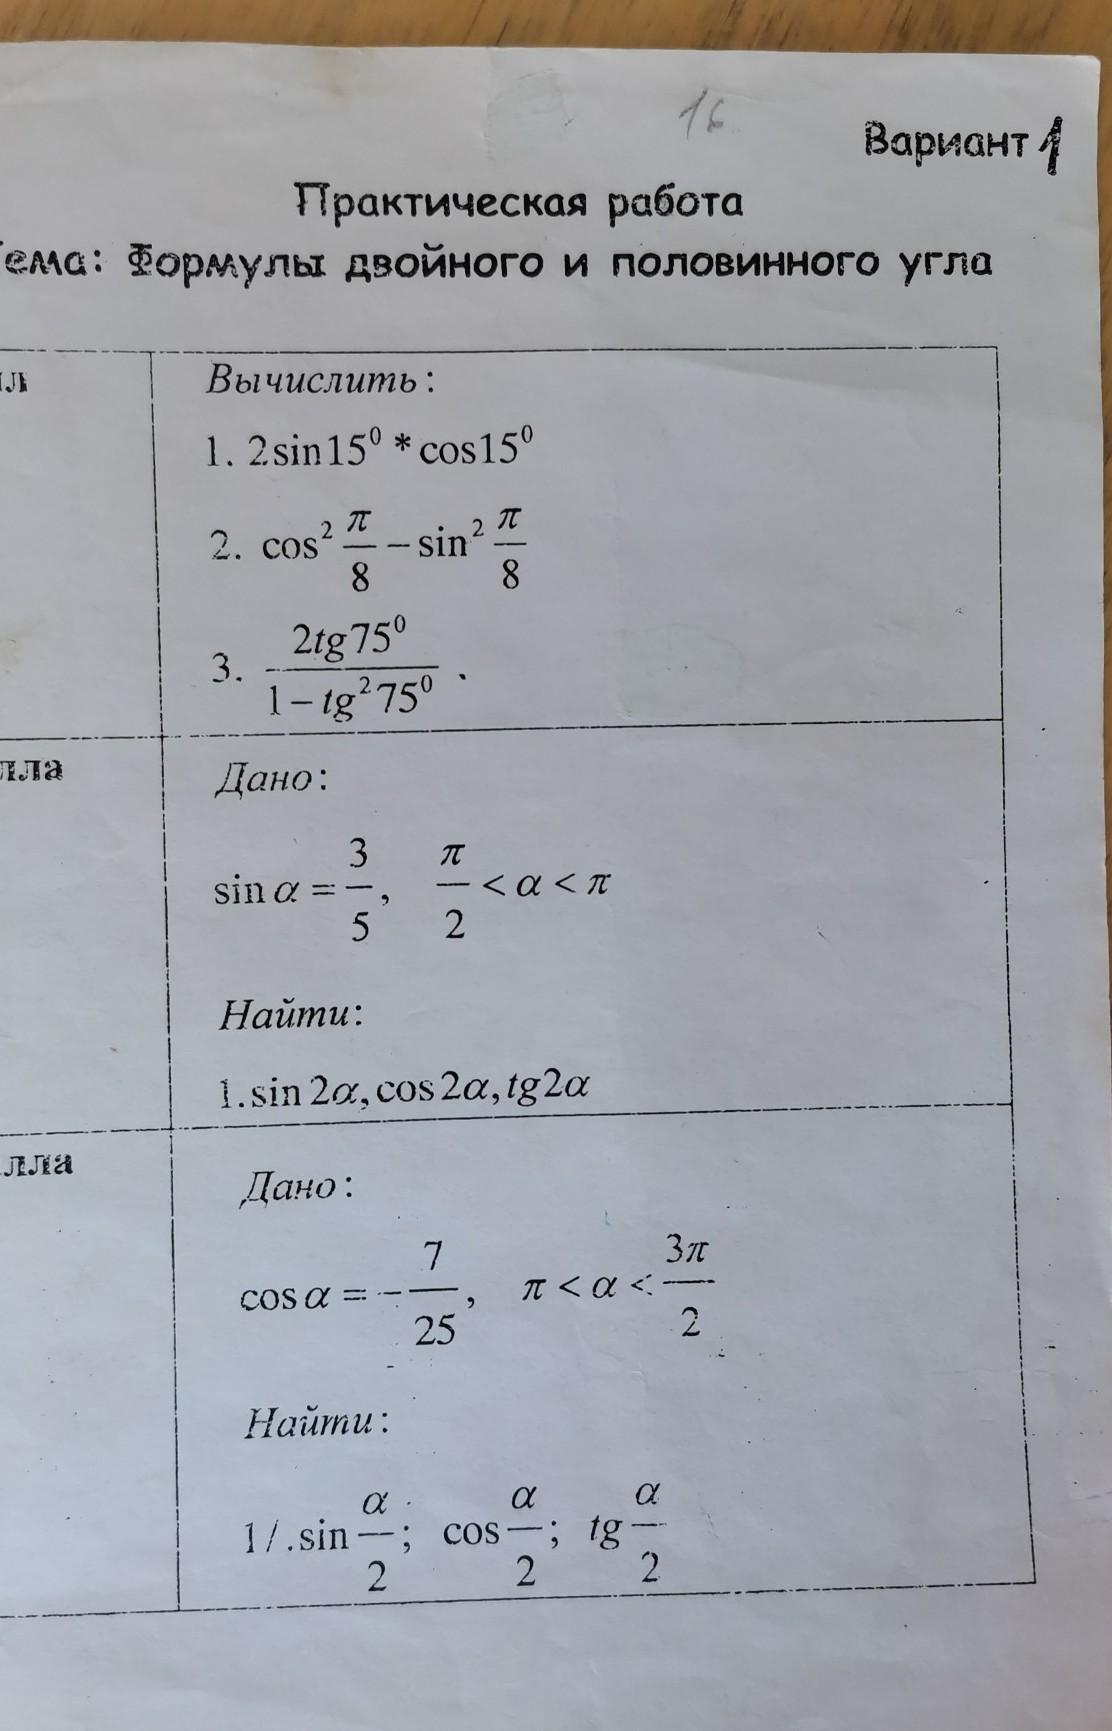 16
Вариант 1
Практическая работа
ема: Формулы двойного и половинного угла
Вычислить:
1. 2sin15⁰ * cos15⁰
2. cos² π/8 – sin² π/8
3. 2tg75⁰ / 1 – tg²75⁰ .
лла
Дано:
sin α = 3/5, π/2 < α < π
Найти:
1.sin 2α, cos 2α, tg2α
лла
Дано:
cos α = – 7/25, π < α < 3π/2
Найти:
1/.sin α/2; cos α/2; tg α/2